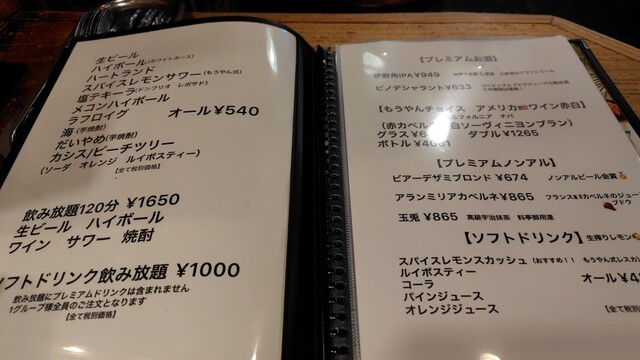 生ビール
ハイボール(ホワイトホース)
ハートランド
スパイスレモンサワー(もうやん式)
塩テキーラ(ドンフリオ レポサド)
メコンハイボール
ラフロイグ オール¥540
海(芋焼酎)
だいやめ(芋焼酎)
カシス/ピーチツリー
(ソーダ オレンジ ルイボスティー)
【全て税別価格】
飲み放題120分 ¥1650
生ビール ハイボール
ワイン サワー 焼酎
ソフトドリンク飲み放題 ¥1000
飲み放題にプレミアムドリンクは含まれません
1グループ様全員のご注文となります
【全て税別価格】
【プレミアムお酒】
伊勢角IPA¥949
ピノデシャラント¥633
【もうやんチョイス アメリカ🇺🇸ワイン赤白】
カルフォルニア ナパ
(赤カベルネ 白ソーヴィニヨンブラン)
グラス ダブル¥1265
ボトル
【プレミアムノンアル】
ビアーデザミブロンド ¥674 ノンアルビール金賞🏅
アランミリアカベルネ¥865 フランス🇫🇷カベルネのジュース
ブドウ
玉兎 ¥865 高級宇治抹茶 料亭御用達
【ソフトドリンク】生搾りレモン🍋
スパイスレモンスカッシュ(おすすめ!! もうやん式レスカ)
ルイボスティー
コーラ オール
パインジュース
オレンジジュース